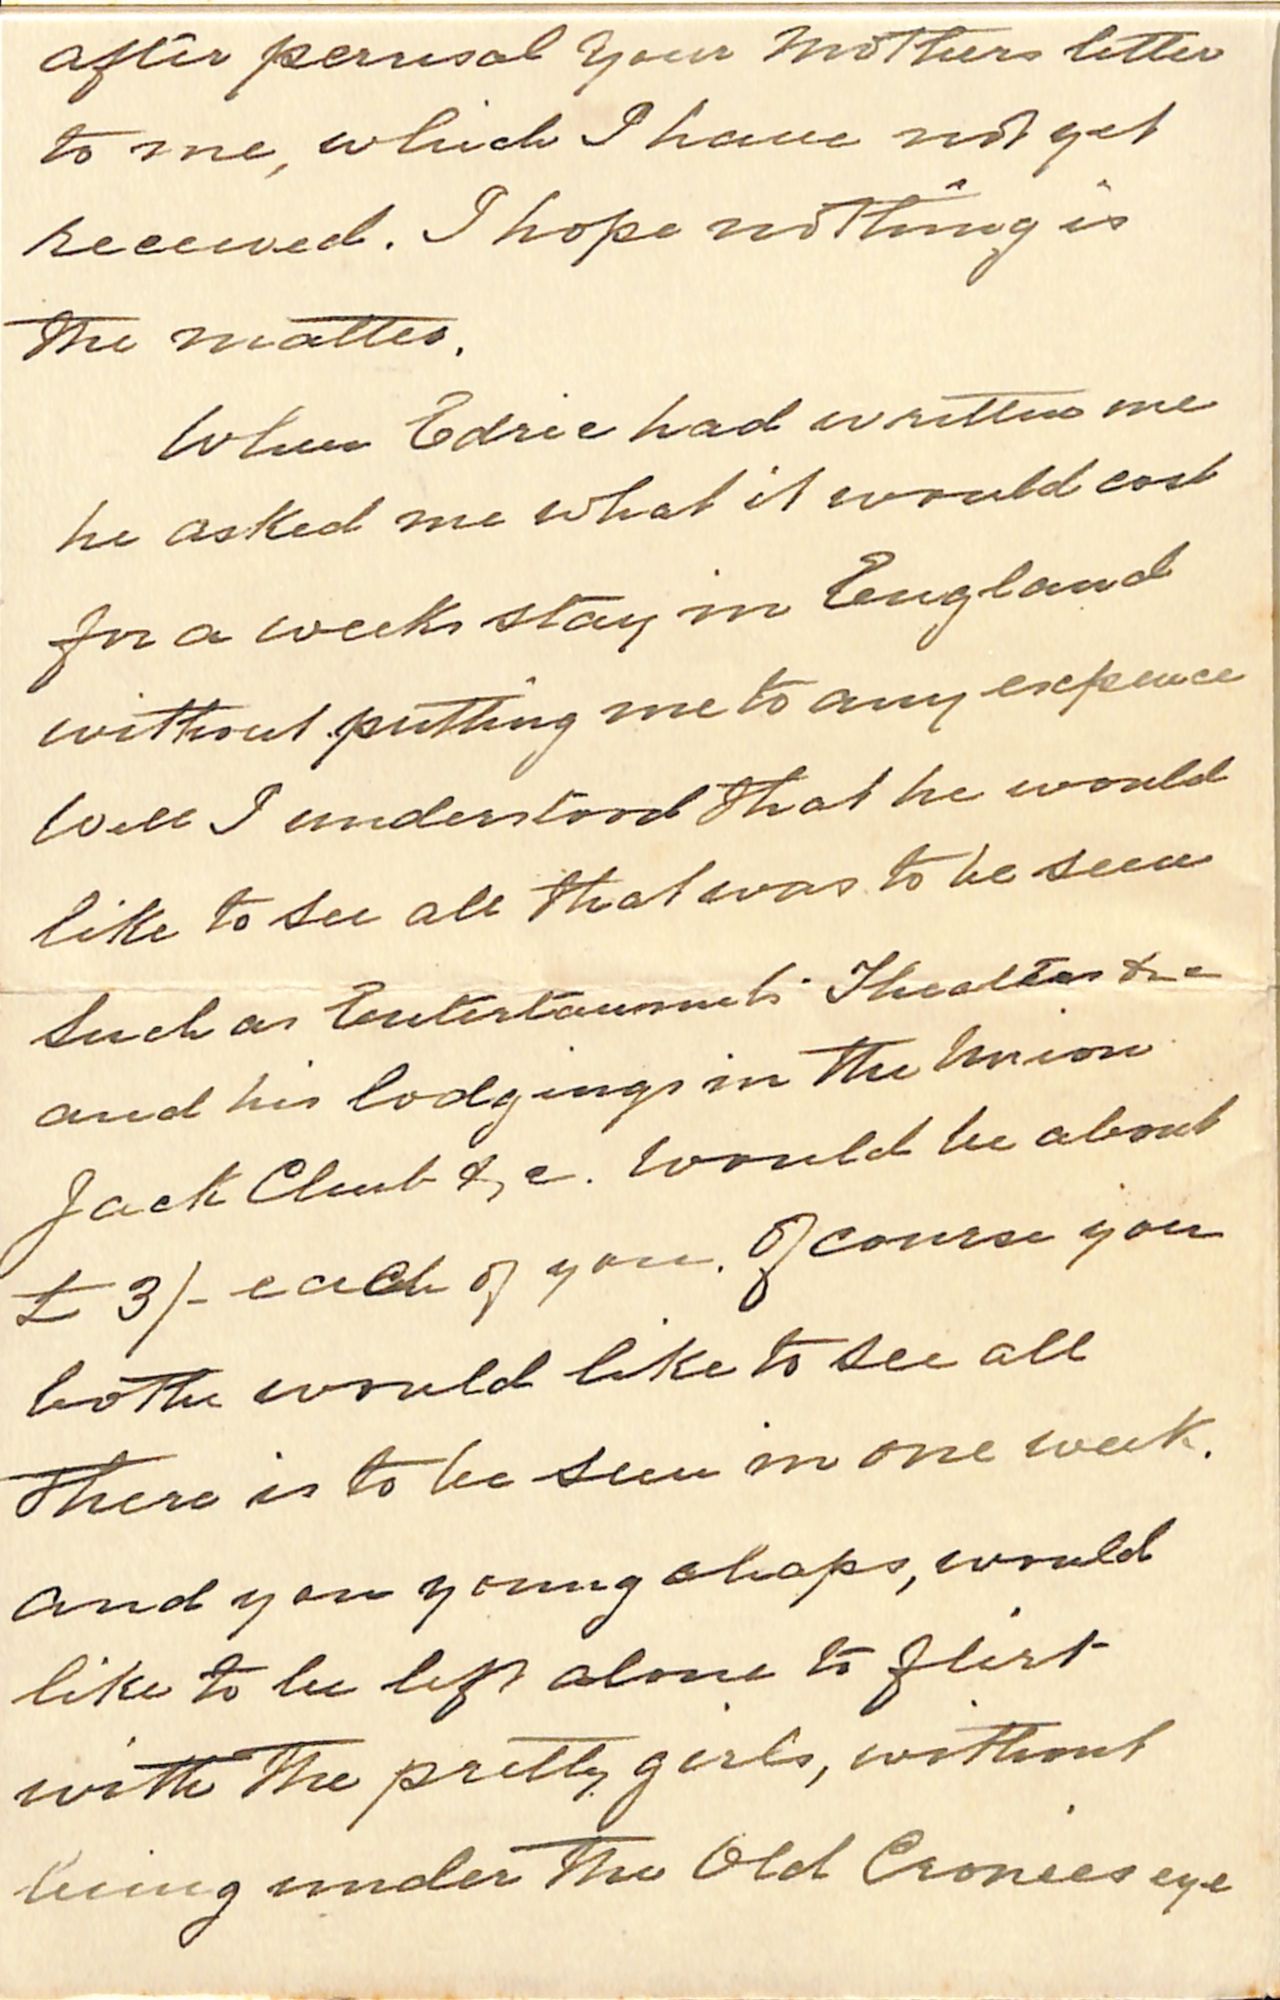 after perusal your Mothers letter
to me, which I have not yet
received. I hope nothing is
the matter.
When Edric had written me
he asked me what it would cost
for a weeks stay in England
without putting me to any expence
Well I understood that he would
like to see all that was to be seen
Such as Entertainments Theatres &c
and his lodgings in the Union
Jack Club &c. would be about
£3/- each of you. Of course you
bothe would like to see all
there is to be seen in one week.
and you young chaps, would
like to be left alone to flirt
with the pretty girls, without
being under the Old Cronies eye